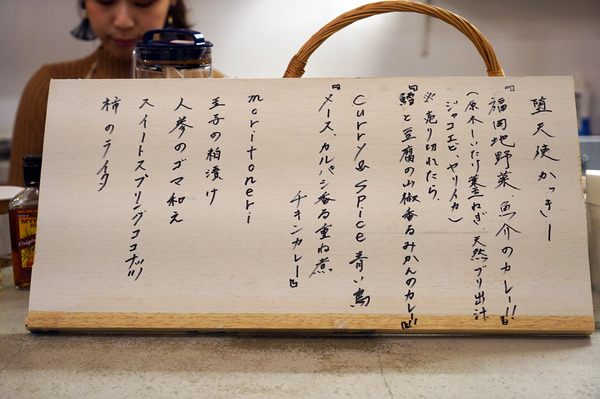 堕天使かっきー
『福岡地野菜 魚介のカレー!!』
(原木しいたけ葉玉ねぎ、天然ブリ出汁
ジャコエビ、ヤリイカ)
※売り切れたら、
『鱈と豆腐の山椒香るみかんのカレー!!』
Curry & Spice 青い鳥
『メース、カルパシ香る重ね煮
チキンカレー』
meritoneri
玉子の粕漬け
人参のゴマ和え
スイートスプリングココナッツ
柿のライタ